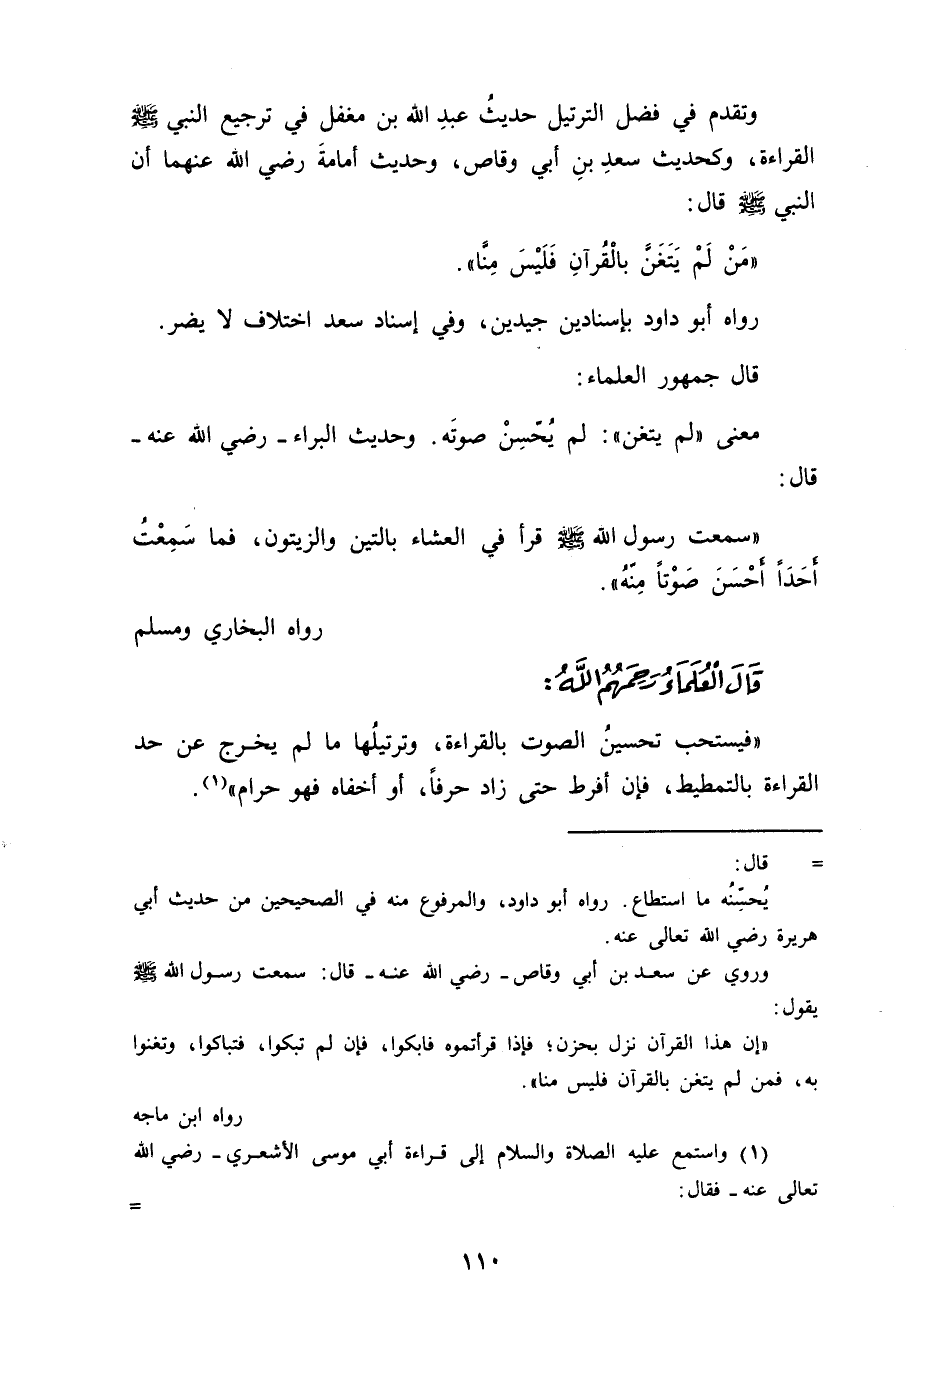 وتقدم في فضل الترتيل حديثُ عبدِ الله بن مغفل في ترجيع النبي ﷺ
القراءة، وكحديث سعدِ بنِ أبي وقاص، وحديث أمامةَ رضي الله عنهما أن
النبي ﷺ قال:
«مَنْ لَمْ يَتَغَنَّ بالْقُرآنِ فَلَيْسَ مِنَّا».
رواه أبو داود بإسنادين جيدين، وفي إسناد سعد اختلاف لا يضر.
قال جمهور العلماء:
معنى «لم يتغن»: لم يُحّسِنْ صوتَه. وحديث البراء ـ رضي الله عنه ـ
قال:
«سمعت رسول الله ﷺ قرأ في العشاء بالتين والزيتون، فما سَمِعْتُ
أَحَدَاً أَحْسَنَ صَوْتاً مِنّهُ».
رواه البخاري ومسلم
قَالَ الْعُلَمَاءُ رَحِمَهُمُ اللَّهُ:
«فيستحب تحسينُ الصوت بالقراءة، وترتيلُها ما لم يخرج عن حد
القراءة بالتمطيط، فإن أفرط حتى زاد حرفاً، أو أخفاه فهو حرام»(١).
= قال:
يُحسِّنُه ما استطاع. رواه أبو داود، والمرفوع منه في الصحيحين من حديث أبي
هريرة رضي الله تعالى عنه.
وروي عن سعد بن أبي وقاص ـ رضي الله عنه ـ قال: سمعت رسول الله ﷺ
يقول:
«إن هذا القرآن نزل بحزن؛ فإذا قرأتموه فابكوا، فإن لم تبكوا، فتباكوا، وتغنوا
به، فمن لم يتغن بالقرآن فليس منا».
رواه ابن ماجه
(١) واستمع عليه الصلاة والسلام إلى قراءة أبي موسى الأشعري ـ رضي الله
تعالى عنه ـ فقال:
=
١١٠